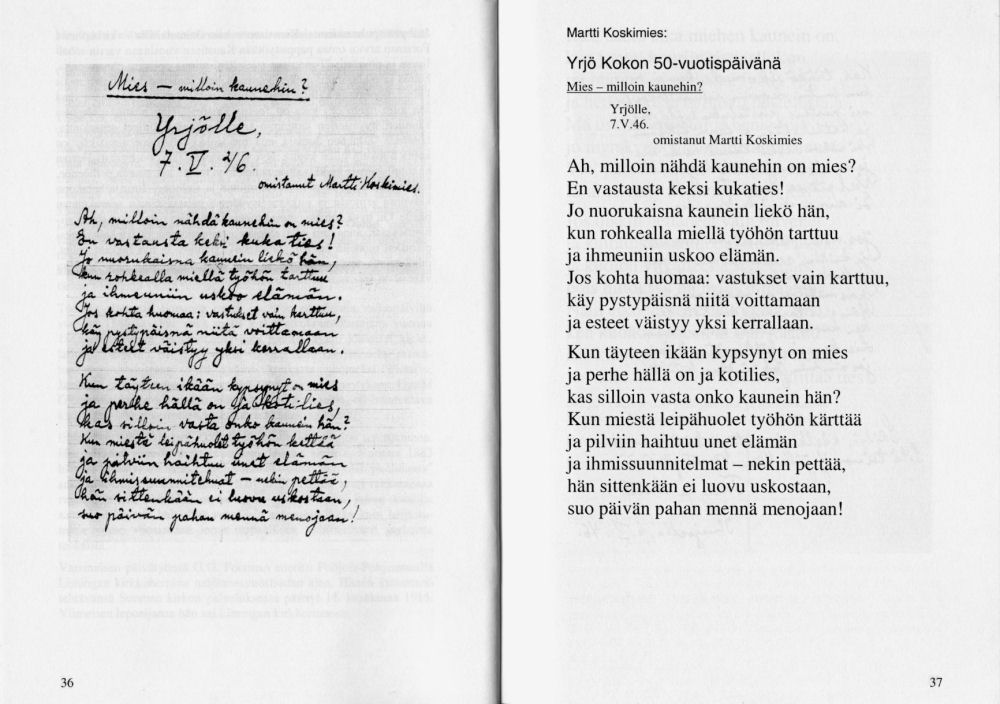 Mies — milloin kaunehin?
Yrjölle,
7.V.46.
omistanut Martti Koskimies.
Ah, milloin nähdä kaunehin on mies?
En vastausta keksi kukaties!
Jo nuorukaisna kaunein liekö hän,
kun rohkealla miellä työhön tarttuu
ja ihmeuniin uskoo elämän.
Jos kohta huomaa: vastukset vain karttuu,
käy pystypäisnä niitä voittamaan
ja esteet väistyy yksi kerrallaan.
Kun täyteen ikään kypsynyt on mies
ja perhe hällä on ja kotilies,
kas silloin vasta onko kaunein hän?
Kun miestä leipähuolet työhön
ja pilviin haihtuu unet elämän
ja ihmissuunnitelmat — nekin pettää,
hän sittenkään ei luovu uskostaan,
suo päivän pahan mennä menojaan!
36
Martti Koskimies:
Yrjö Kokon 50-vuotispäivänä
Mies – milloin kaunehin?
Yrjölle,
7.V.46.
omistanut Martti Koskimies
Ah, milloin nähdä kaunehin on mies?
En vastausta keksi kukaties!
Jo nuorukaisna kaunein liekö hän,
kun rohkealla miellä työhön tarttuu
ja ihmeuniin uskoo elämän.
Jos kohta huomaa: vastukset vain karttuu,
käy pystypäisnä niitä voittamaan
ja esteet väistyy yksi kerrallaan.
Kun täyteen ikään kypsynyt on mies
ja perhe hällä on ja kotilies,
kas silloin vasta onko kaunein hän?
Kun miestä leipähuolet työhön kärttää
ja pilviin haihtuu unet elämän
ja ihmissuunnitelmat – nekin pettää,
hän sittenkään ei luovu uskostaan,
suo päivän pahan mennä menojaan!
37